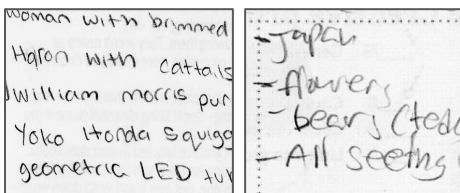 woman with brimmed
Haron with cattails
William morris pur
Yoko Honda Squigg
geometric LED
-Japan
-flowers
-bears (tedd
-All seeing